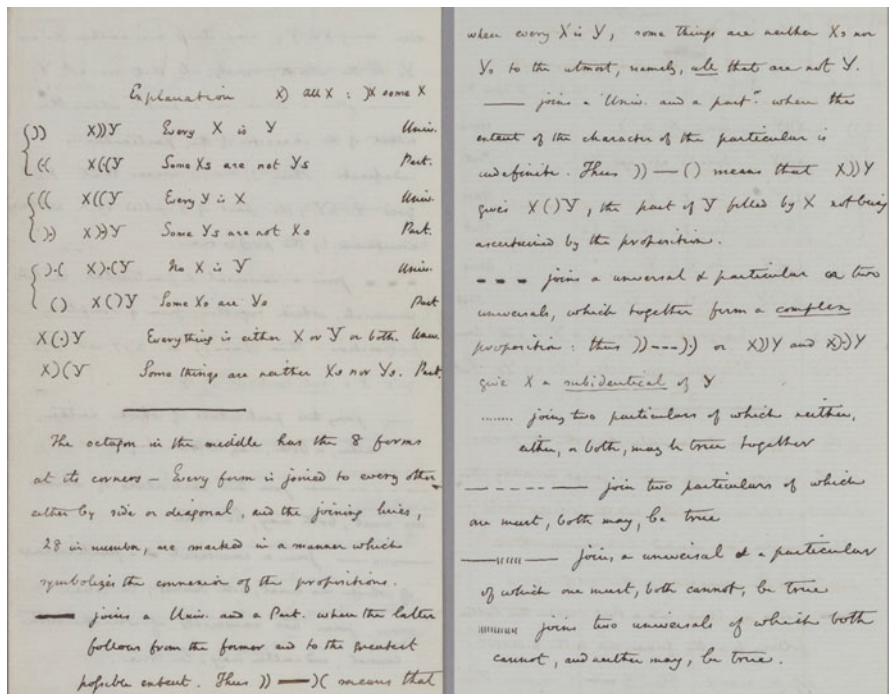 Explanation X) all X : )X some X
)) X))Y Every X is Y Univ.
(·( X(·(Y Some Xs are not Ys Part.
(( X((Y Every Y is X Univ.
)·) X)·)Y Some Ys are not Xs Part.
)·( X)·(Y No X is Y Univ.
() X()Y Some Xs are Ys Part
X(·)Y Everything is either X or Y or both. Univ.
X)(Y Some things are neither Xs nor Ys. Part.
The octagon in the middle has the 8 forms
at its corners – Every form is joined to every other
either by side or diagonal, and the joining lines,
28 in number, are marked in a manner which
symbolizes the connexion of the propositions.
—— joins a Univ. and a Part. where the latter
follows from the former and to the greatest
possible extent. Thus )) —— )( means that
when every X is Y, some things are neither Xs nor
Ys to the utmost, namely, all that are not Y.
—— joins a Univ. and a part^r. where the
extent of the character of the particular is
indefinite. Thus )) — () means that X))Y
gives X()Y, the part of Y filled by X not being
ascertained by the proposition.
- - - joins a universal & particular or two
universals, which together form a complex
proposition: thus )) --- )·) or X))Y and X)·)Y
give X a subidentical of Y
........ joins two particulars of which neither,
either, or both, may be true together
—— - - - —— join two particulars of which
one must, both may, be true
——ıııııı—— joins a universal & a particular
of which one must, both cannot, be true
ıııııııııı joins two universals of which both
cannot, and neither may, be true.